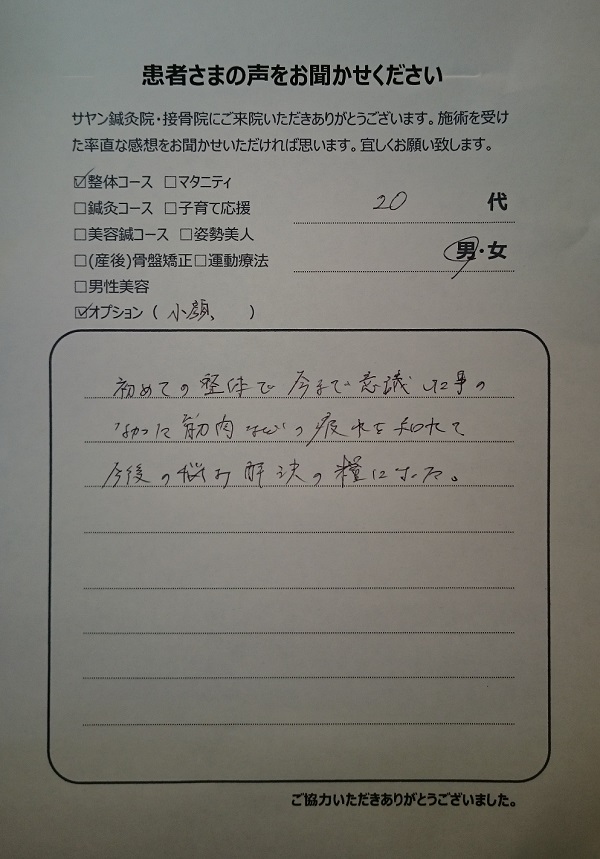 患者さまの声をお聞かせください
サヤン鍼灸院・接骨院にご来院いただきありがとうございます。施術を受け
た率直な感想をお聞かせいただければ思います。宜しくお願い致します。
☑整体コース □マタニティ
□鍼灸コース □子育て応援
20 代
□美容鍼コース □姿勢美人
男・女
□(産後)骨盤矯正□運動療法
□男性美容
☑オプション ( 小顔、 )
初めての整体で今まで意識した事の
なかった筋肉などの疲れを知れて
今後の悩み解決の糧になった。
ご協力いただきありがとうございました。